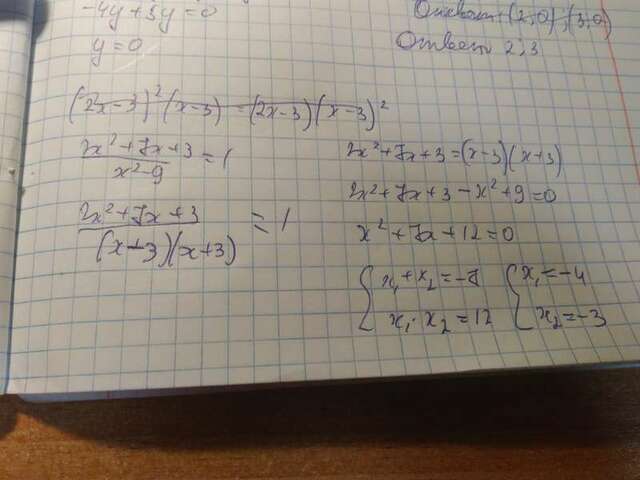 -4y+3y=0
y=0
Ответ: (2;0);(3;0)
Ответ 2;3
(2x-3)²(x-3)=(2x-3)(x-3)²
2x²+7x+3
x²-9
=1
2x²+7x+3
(x-3)(x+3)
=1
2x²+7x+3=(x-3)(x+3)
2x²+7x+3-x²+9=0
x²+7x+12=0
x₁+x₂=-7
x₁·x₂=12
x₁=-4
x₂=-3